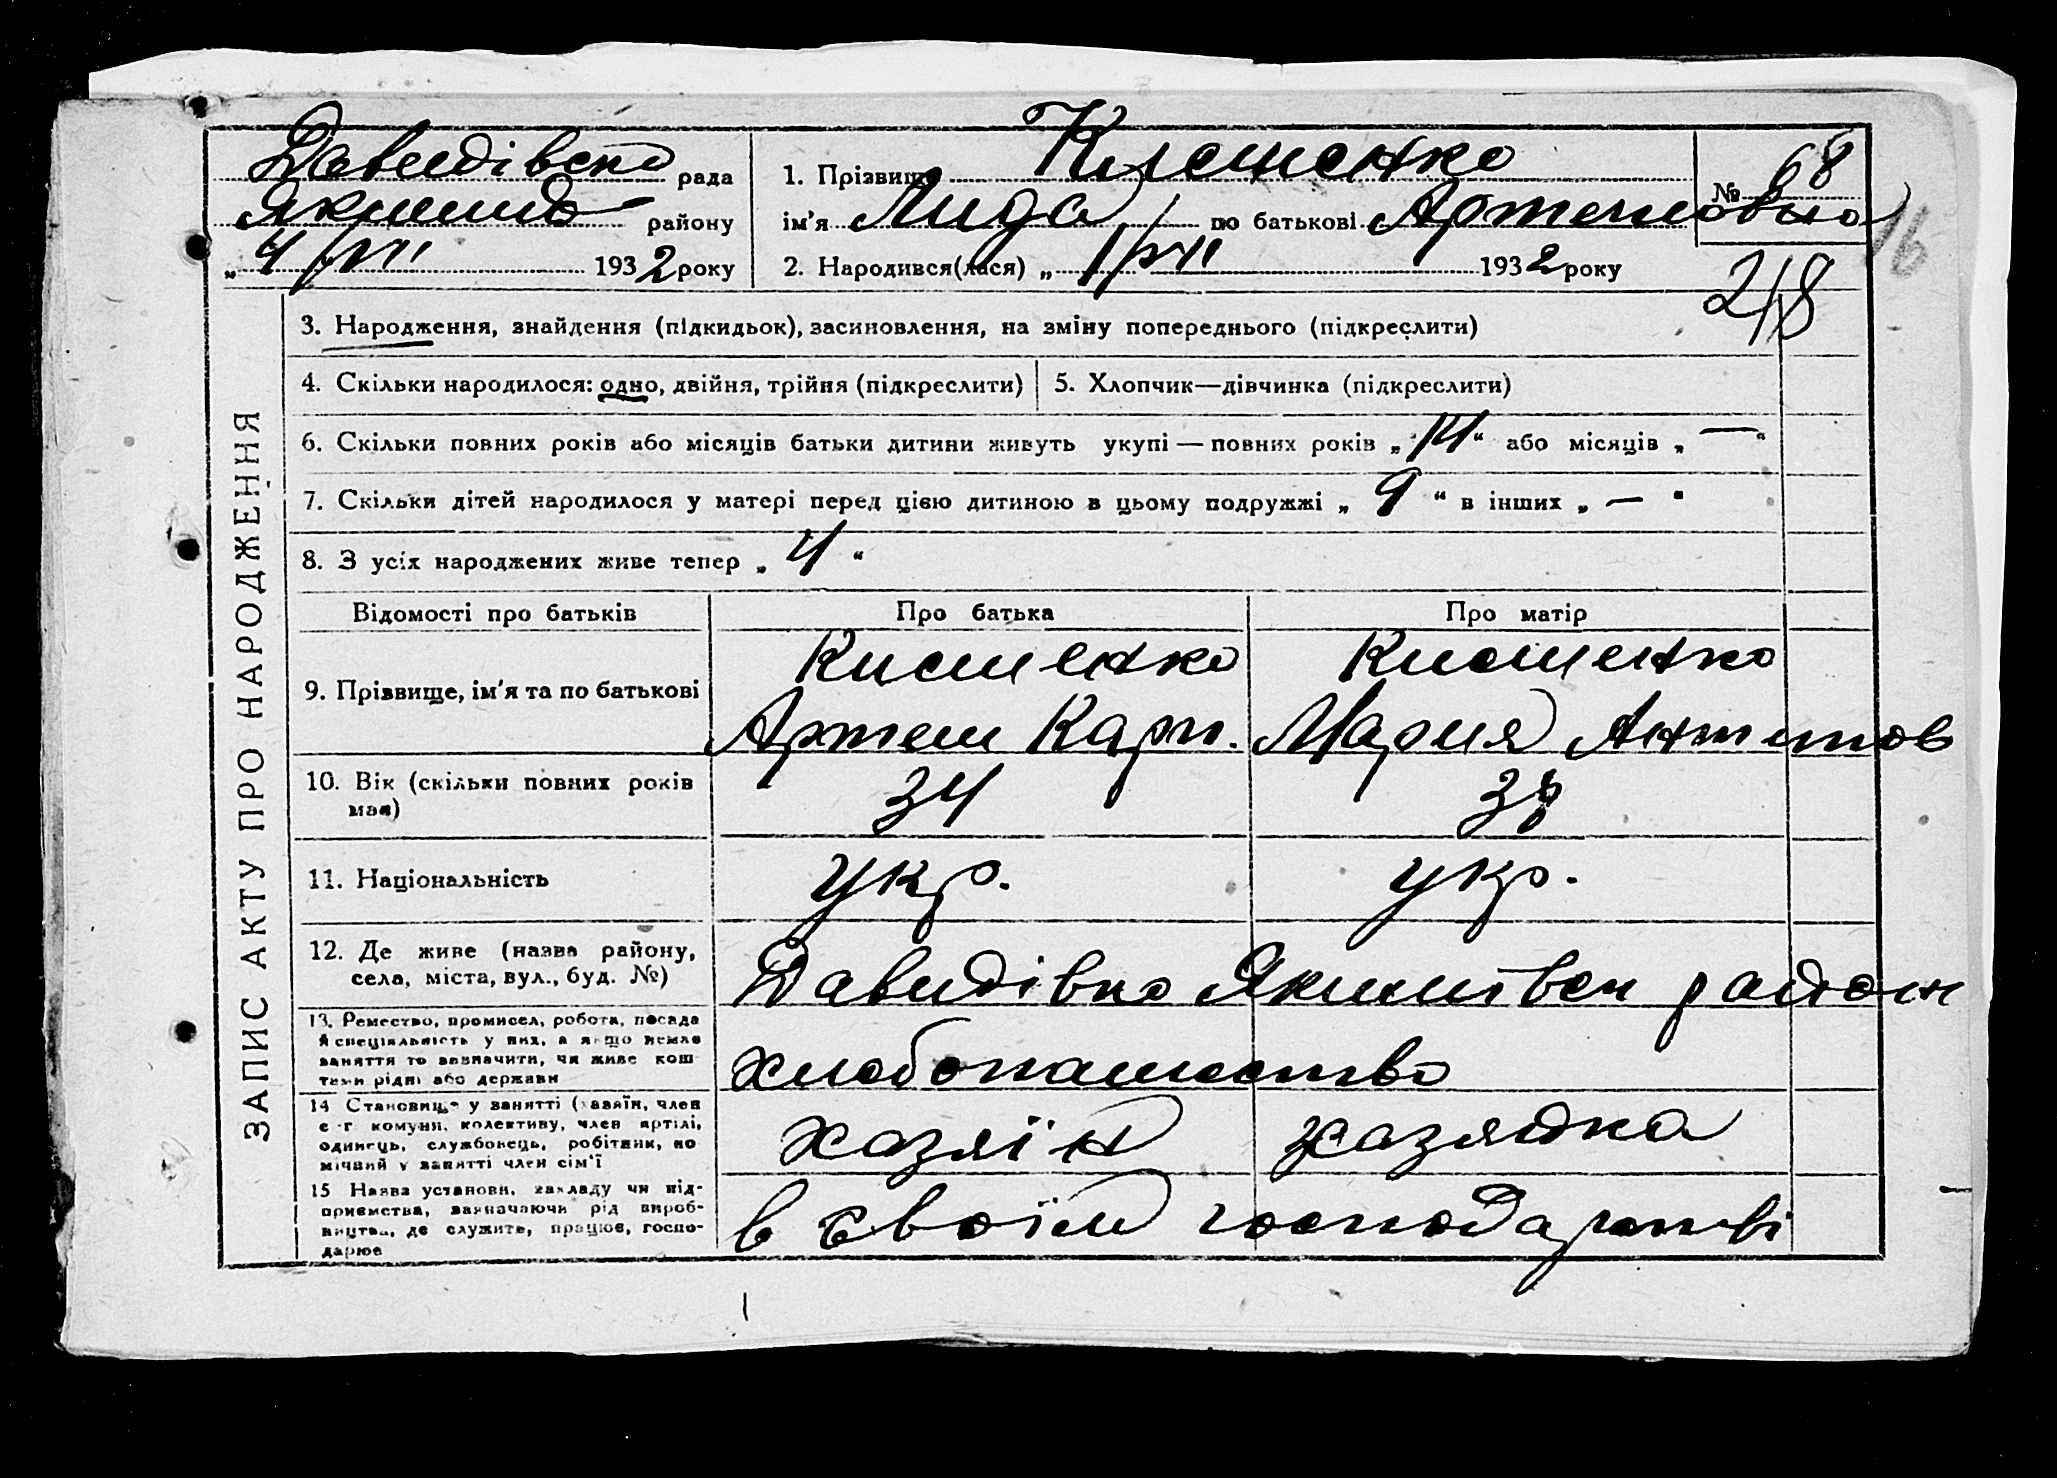 Давидівско рада
Якимів району
„ 4/VII 1932 року
1. Прізвище Клещенко
ім'я Лида по батькові Артемовна
2. Народився(лася) „ 1/VII 1932 року
№ 68
16
2/8
ЗАПИС АКТУ ПРО НАРОДЖЕННЯ
3. Народження, знайдення (підкидьок), засиновлення, на зміну попереднього (підкреслити)
4. Скільки народилося: одно, двійня, трійня (підкреслити)
5. Хлопчик—дівчинка (підкреслити)
6. Скільки повних років або місяців батьки дитини живуть укупі — повних років „ 14 “ або місяців „ — “
7. Скільки дітей народилося у матері перед цією дитиною в цьому подружжі „ 9 “ в інших „ — “
8. З усіх народжених живе тепер „ 4 “
Відомості про батьків
Про батька
Про матір
9. Прізвище, ім'я та по батькові
Артем Карп.
Мария Антипов
10. Вік (скільки повних років
має)
34
38
11. Національність
укр.
укр.
12. Де живе (назва району,
села, міста, вул., буд. №)
Давидівно Якимівск район
13. Ремество, промисел, робота, посада
й спеціяльність у них, а якщо немає
заняття то визначити, чи живе кош
тами рідні або держави
хлебопашество
14 Становище у занятті (хазяїн, член
с-г комуни, колективу, член артілі,
одинець, службовець, робітник, по
мічний у занятті член сім'ї
хазяїн
хазяйка
15 Назва установи, закладу чи під-
приємства, зазначаючи рід вироб-
ництва, де служить, працює, госпо-
дарює
в своїм господарстві